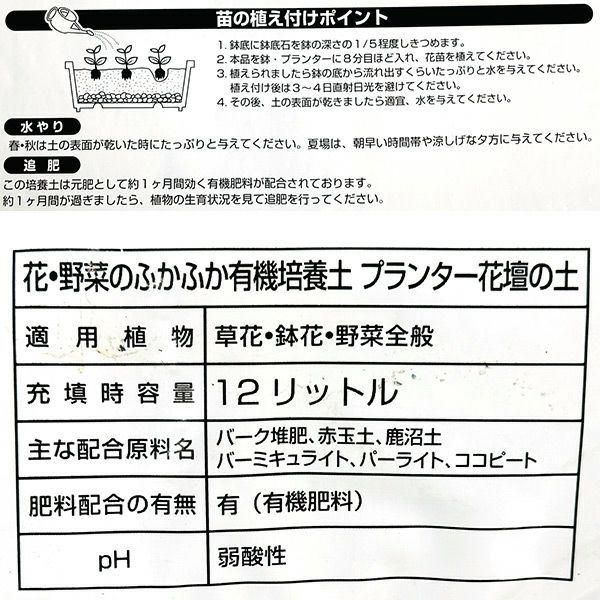 苗の植え付けポイント
1. 鉢底に鉢底石を鉢の深さの1/5程度しきつめます。
2. 本品を鉢・プランターに8分目ほど入れ、花苗を植えてください。
3. 植えられましたら鉢の底から流れ出すくらいたっぷりと水を与えてください。
植え付け後は3〜4日直射日光を避けてください。
4. その後、土の表面が乾きましたら適宜、水を与えてください。
水やり
春・秋は土の表面が乾いた時にたっぷりと与えてください。夏場は、朝早い時間帯や涼しげな夕方に与えてください。
追肥
この培養土は元肥として約1ヶ月間効く有機肥料が配合されております。
約1ヶ月間が過ぎましたら、植物の生育状況を見て追肥を行ってください。
花・野菜のふかふか有機培養土 プランター花壇の土
適用植物 草花・鉢花・野菜全般
充填時容量 12リットル
主な配合原料名 バーク堆肥、赤玉土、鹿沼土
バーミキュライト、パーライト、ココピート
肥料配合の有無 有（有機肥料）
pH 弱酸性